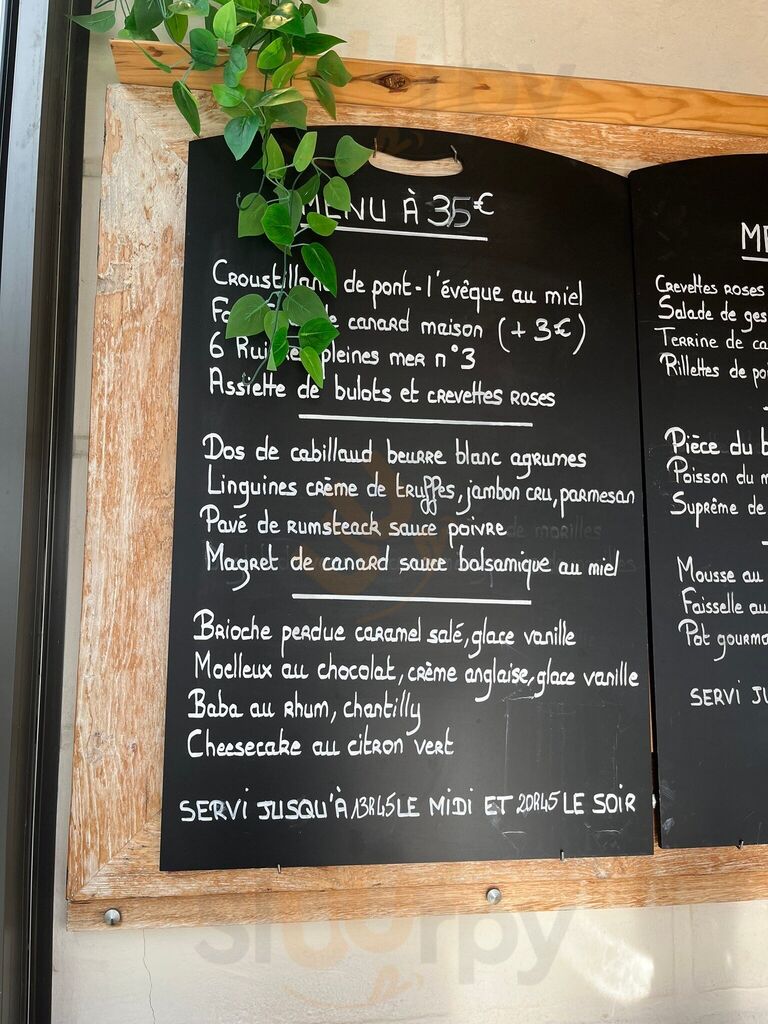 MENU À 35€
Croustillant de pont-l'évêque au miel
canard maison (+3€)
6 pleines mer n°3
Assiette de bulots et crevettes roses
Dos de cabillaud beurre blanc agrumes
Linguines crème de truffes, jambon cru, parmesan
Pavé de rumsteack sauce poivre
Magret de canard sauce balsamique au miel
Brioche perdue caramel salé, glace vanille
Moelleux au chocolat, crème anglaise, glace vanille
Baba au rhum, chantilly
Cheesecake au citron vert
SERVI JUSQU'À 13H45 LE MIDI ET 20H45 LE SOIR
Crevettes roses
Salade de
Terrine de
Rillettes de
Pièce du
Poisson du
Suprême de
Mousse au
Faisselle au
Pot
SERVI